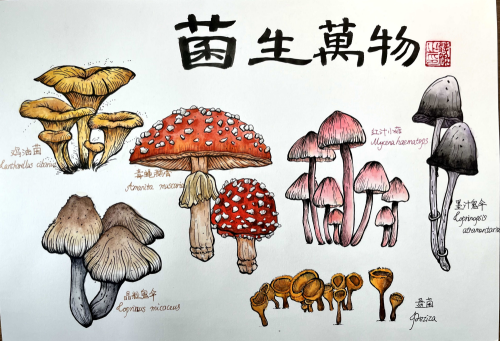 菌生萬物
鸡油菌
Cantharellus cibarius
毒蝇鹅膏
Amanita muscaria
红汁小菇
Mycena haematopus
墨汁鬼伞
Coprinopsis
atramentaria
晶粒鬼伞
Coprinus micaceus
盘菌
Peziza